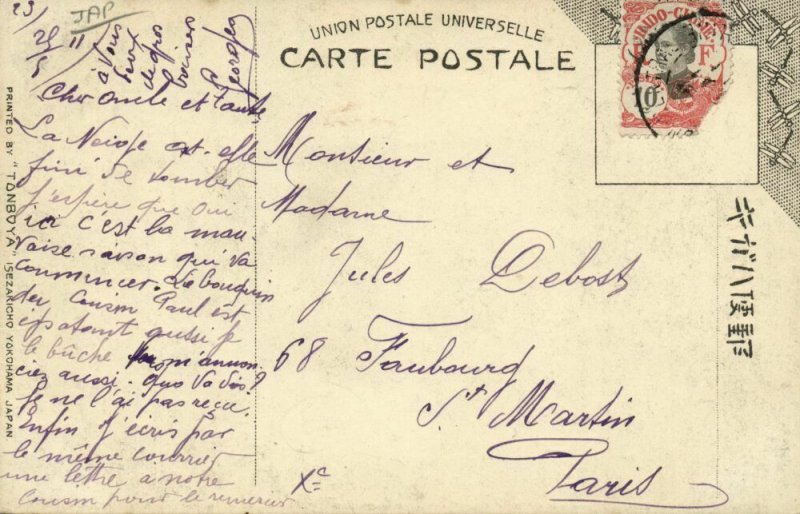 JAP
23/
25/11
5
à vous
deux
de gros
baisers
Georges
Cher oncle et tante,
La Neige est-elle
fini de tomber
j'espère que oui
ici c'est la mau-
vaise saison qui va
commencer. Le bouquin
du Cousin Paul est
épatant aussi je
le bûche m'annon-
ciez aussi
Je ne l'ai pas reçu.
Enfin j'écris par
le même courrier
une lettre a notre
Cousin pour le remercier
UNION POSTALE UNIVERSELLE
CARTE POSTALE
INDO-CHINE
R F
10
Monsieur et
Madame
Jules Debost
68 Faubourg
St Martin
Paris
キガハ便郵
PRINTED BY "TONBOYA" ISEZAKICHO YOKOHAMA JAPAN